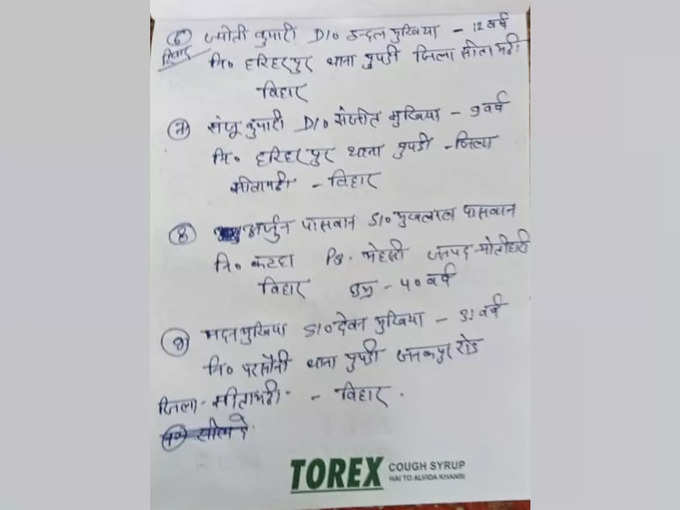 ६ ज्योती कुमारी D/o इन्दल मुखिया - 12 वर्ष
नि० हरिहरपुर थाना पुपडी जिला सीतामढी
बिहार
७ संजू कुमारी D/o संजीत मुखिया - 9 वर्ष
नि० हरिहरपुर थाना पुपडी - जिला
सीतामढी - बिहार
8 अर्जुन पासवान S/o भुवलाल पासवान
नि० कटहा PS. मेहसी जनपद - मोतीहारी
बिहार उम्र - ५० वर्ष
9 मदन मुखिया S/o देवन मुखिया - 31 वर्ष
नि० परसौनी थाना पुपडी जनकपुर रोड
जिला - सीतामढी - बिहार.
TOREX COUGH SYRUP
HAI TO ALVIDA KHANSI